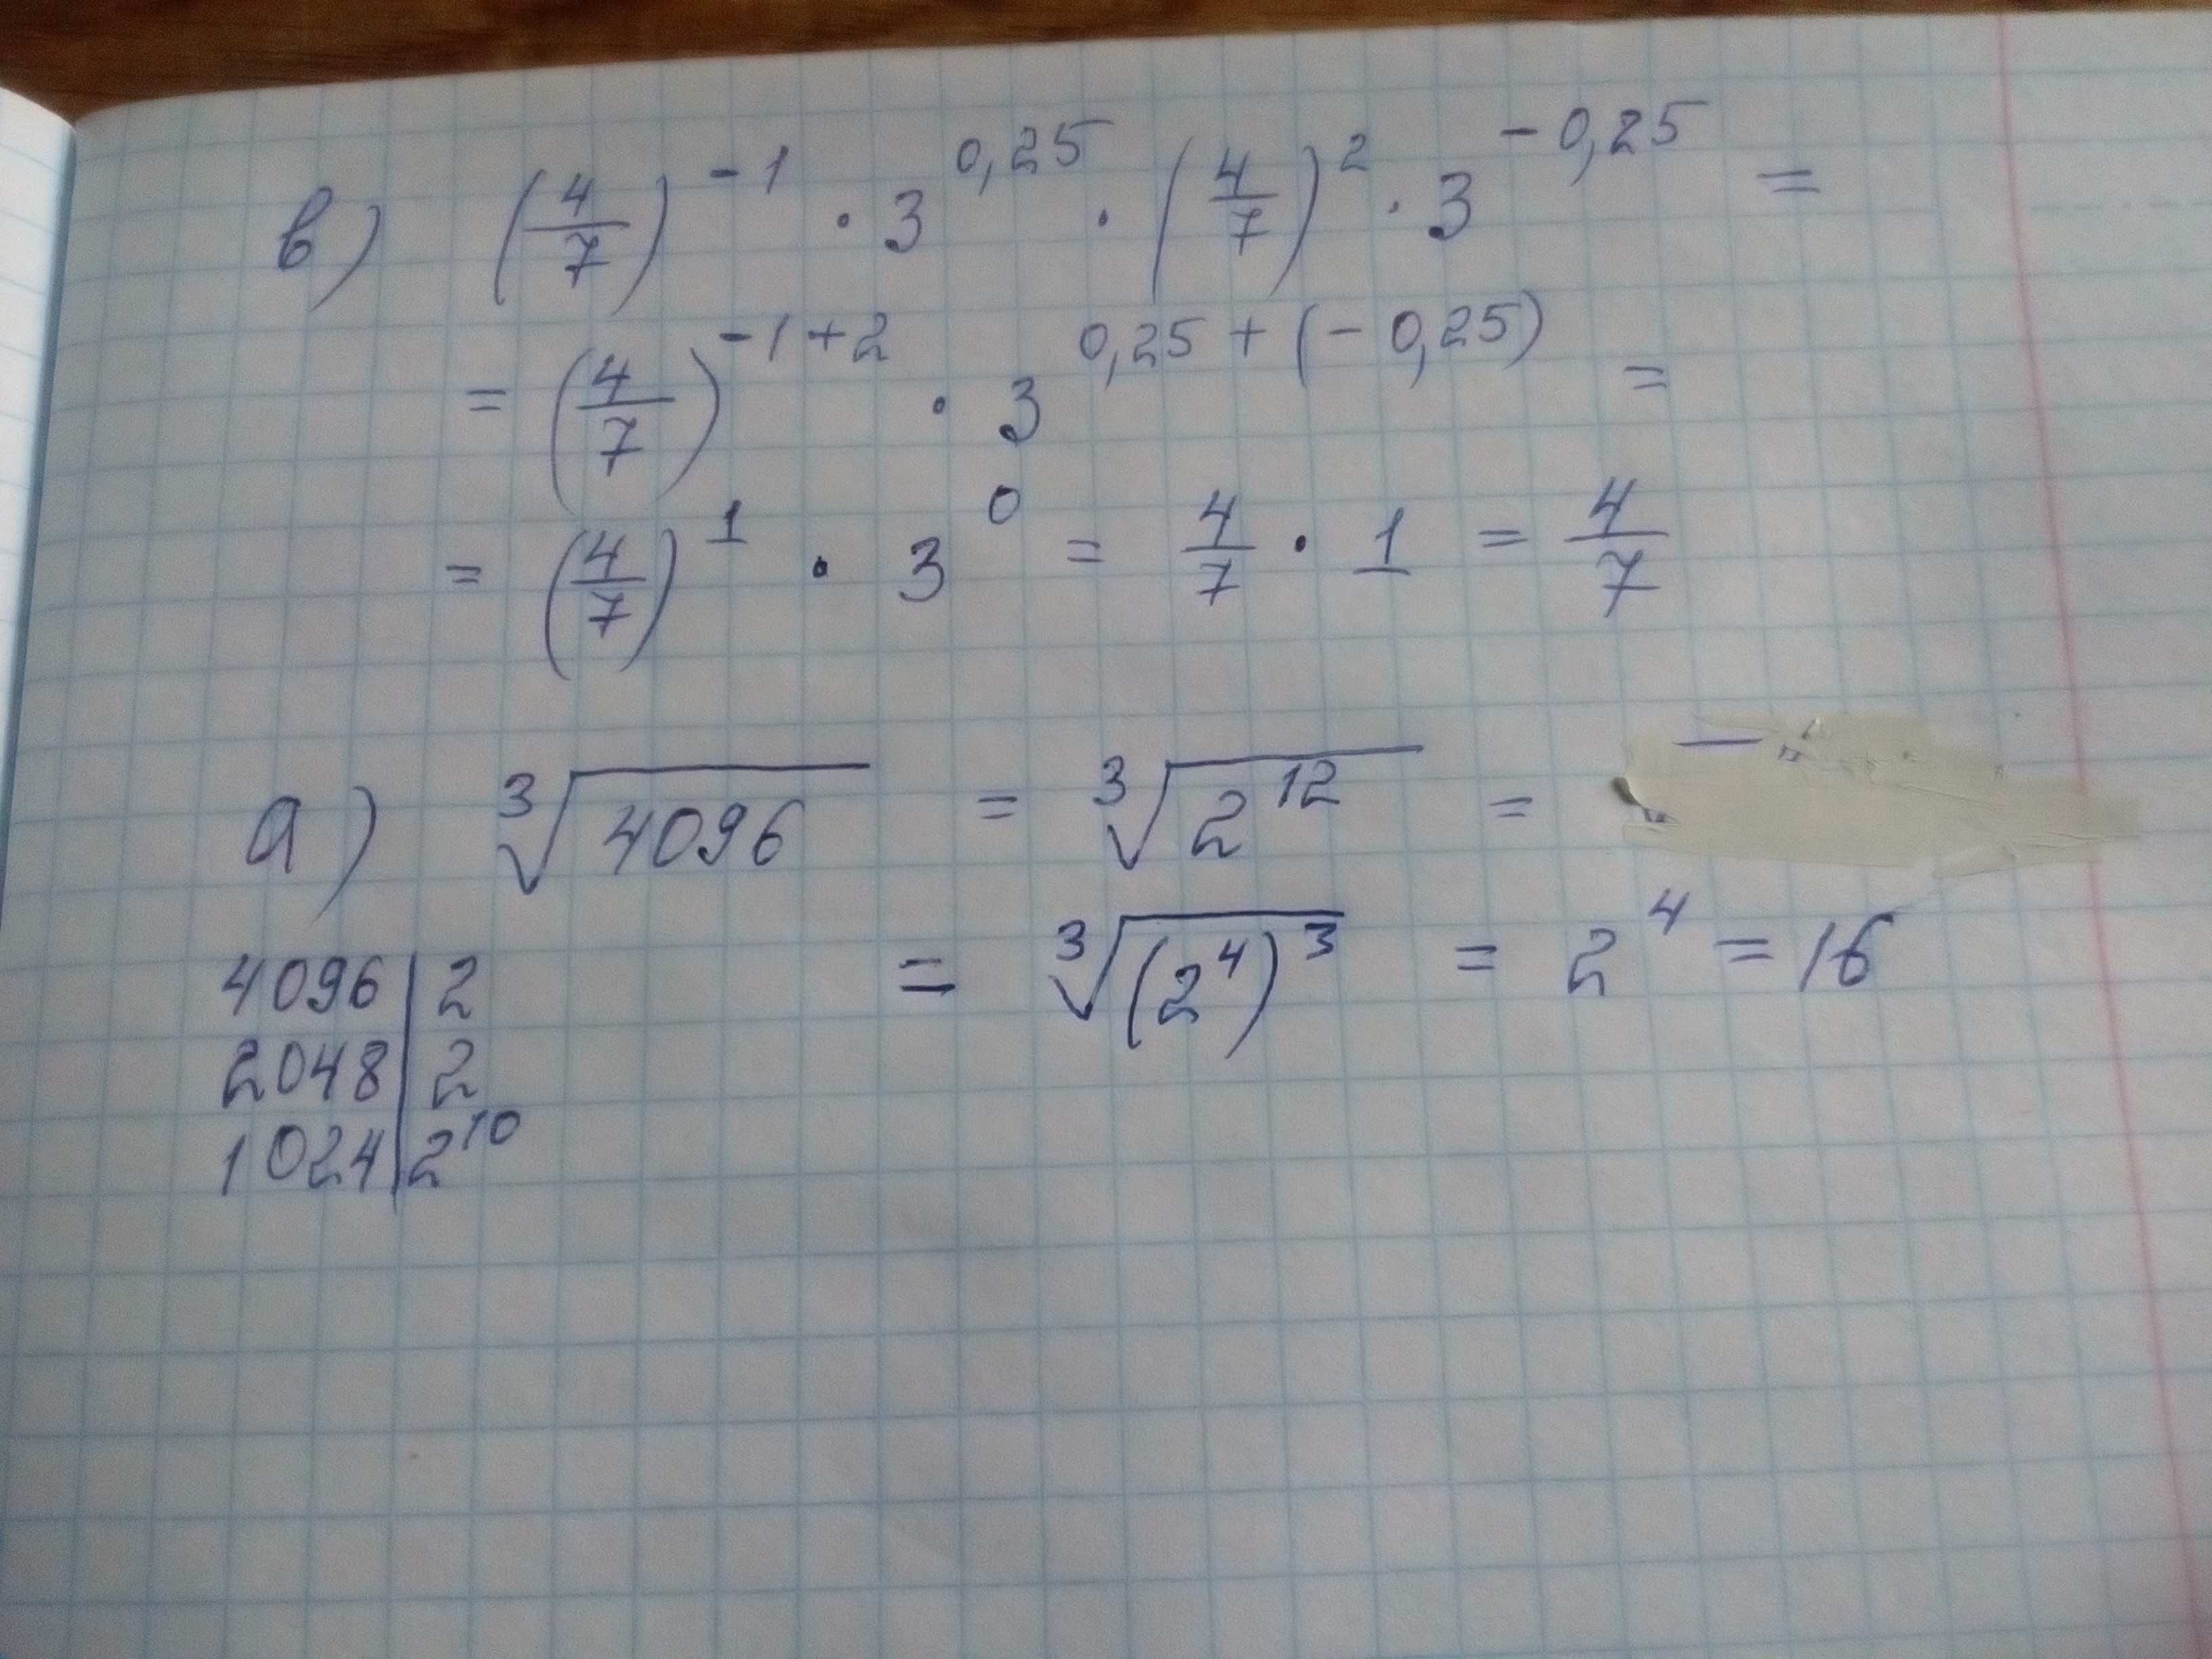 в) (4/7)^-1 · 3^0,25 · (4/7)^2 · 3^-0,25 =
= (4/7)^-1+2 · 3^0,25+(-0,25) =
= (4/7)^1 · 3^0 = 4/7 · 1 = 4/7
а) ∛4096 = ∛2^12 =
= ∛(2^4)^3 = 2^4 = 16
4096 | 2
2048 | 2
1024 | 2^10